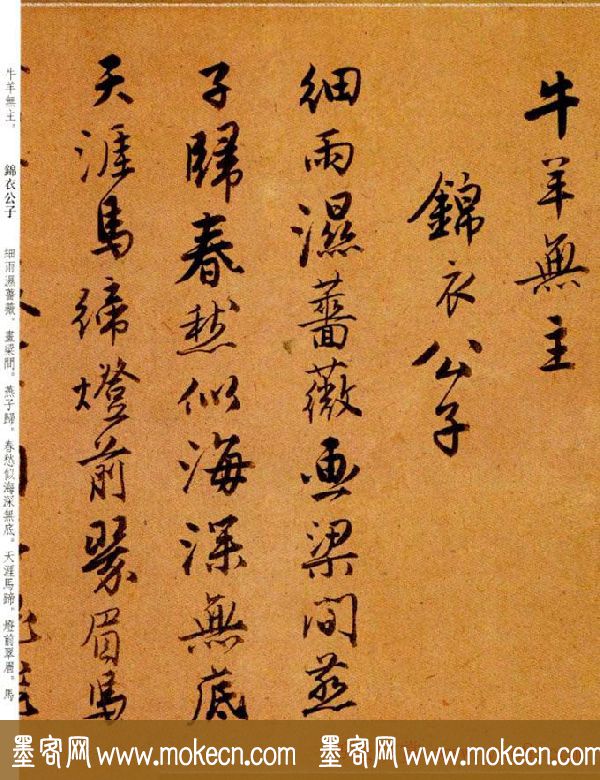 牛羊無主
錦衣公子
細雨濕薔薇画梁間燕
子歸春愁似海深無底
天涯馬蹄燈前翠眉馬
牛羊無主。 錦衣公子 細雨濕薔薇。畫梁間。燕子歸。春愁似海深無底。天涯馬蹄。燈前翠眉。馬
墨客网 www.mokecn.com 墨客网 www.mokecn.com